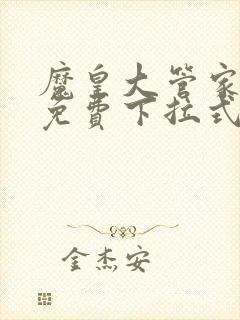 魔皇大管家
免費下拉式
金杰安